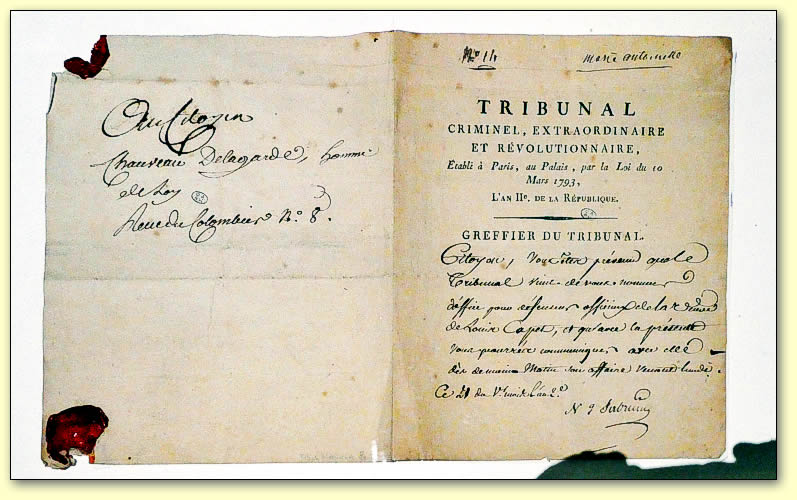 Au Citoyen
Chauveau Delagarde, homme
de Loy
Rue du Colombier N.º 8.
Nº 14
Marie Antoinette
TRIBUNAL
CRIMINEL, EXTRAORDINAIRE
ET RÉVOLUTIONNAIRE,
Établi à Paris, au Palais, par la Loi du 10
Mars 1793,
L'AN IIe. DE LA RÉPUBLIQUE.
GREFFIER DU TRIBUNAL.
Citoyen, Vous êtes prévenu que le
Tribunal vient de vous nommer
d'office pour défenseur officieux de la veuve
de Louis Capet, et qu'avec la présente
vous pourrez communiquer avec elle
dès demain matin son affaire venant lundi.
Ce 21 du 1er mois l'an 2.e
N J Fabricius